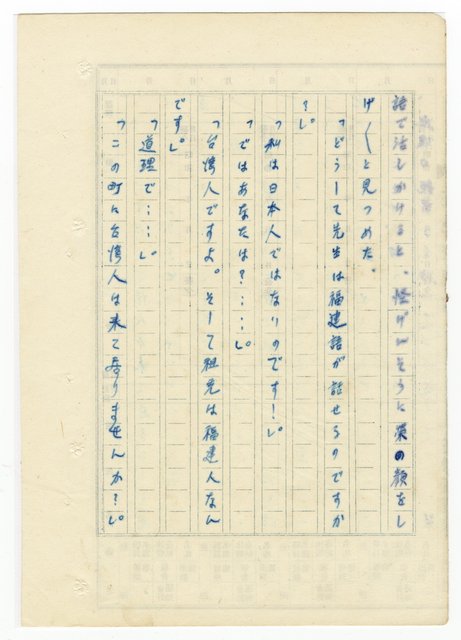 語で話しかけると、怪げんそうに僕の顔をし
げ〱と見つめた。
「どうして先生は福建語が話せるのですか
？」。
「私は日本人ではないのです！」。
「ではあなたは？……」。
「台湾人ですよ。そして祖先は福建人なん
です」。
「道理で……」。
「この町に台湾人は来て居りませんか？」。